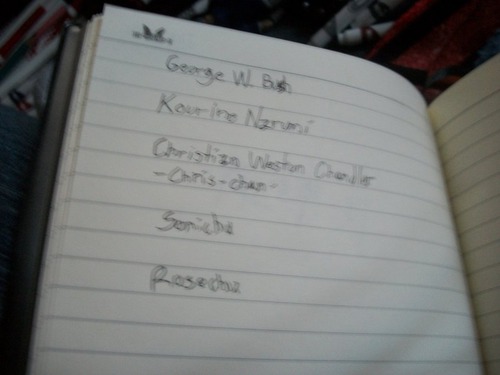 George W. Bush
Kourine Narumi
Christian Weston Chandler
-Chris-chan-
Sonichu
Rosechu